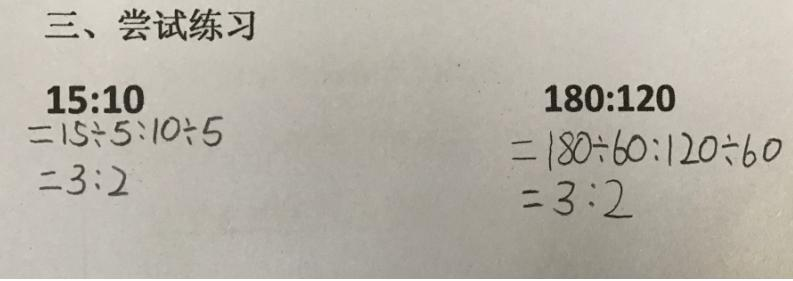 三、尝试练习
15:10
=15÷5:10÷5
=3:2
180:120
=180÷60:120÷60
=3:2